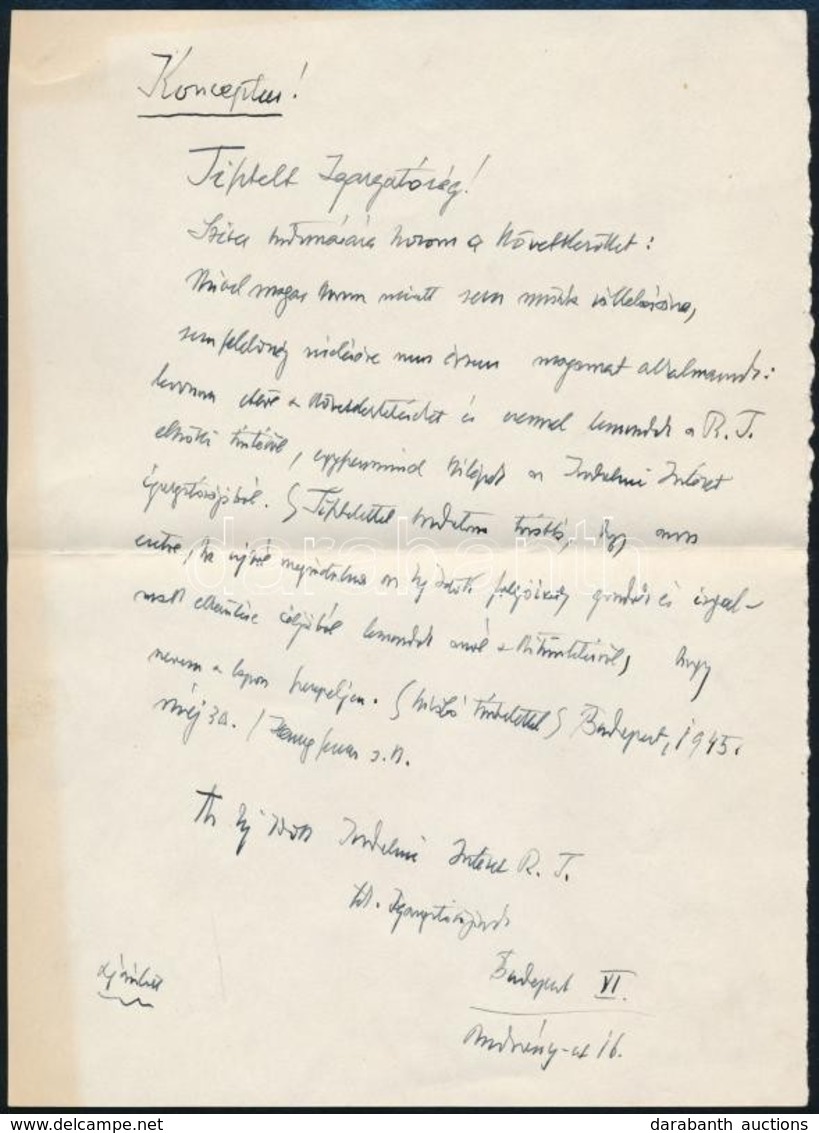 Konceptus!
Tisztelt Igazgatóság!
Szíves tudomására hozom a következőket:
Mivel magas korom miatt sem munka vállalására,
sem felelősség viselésére nem érzem magamat alkalmasnak:
levonom ennek a következtetéseket és ezennel lemondok a R. T.
elnöki tisztéről, egyszersmind kilépek az Irodalmi Intézet
igazgatóságából. Tisztelettel tudatom továbbá, hogy
esetre, ha újból megindulna az Új Idők folyóirat,
céljából lemondok arról a kitüntetésről, hogy
nevem a lapon szerepeljen. Kiváló tisztelettel Budapest, 1945.
máj 30. s. k.
Az Új Idők Irodalmi Intézet R. T.
tek. Igazgatóságának
Budapest VI.
Andrássy-út 16.
ajánlva
darabanth
darabanth auctions